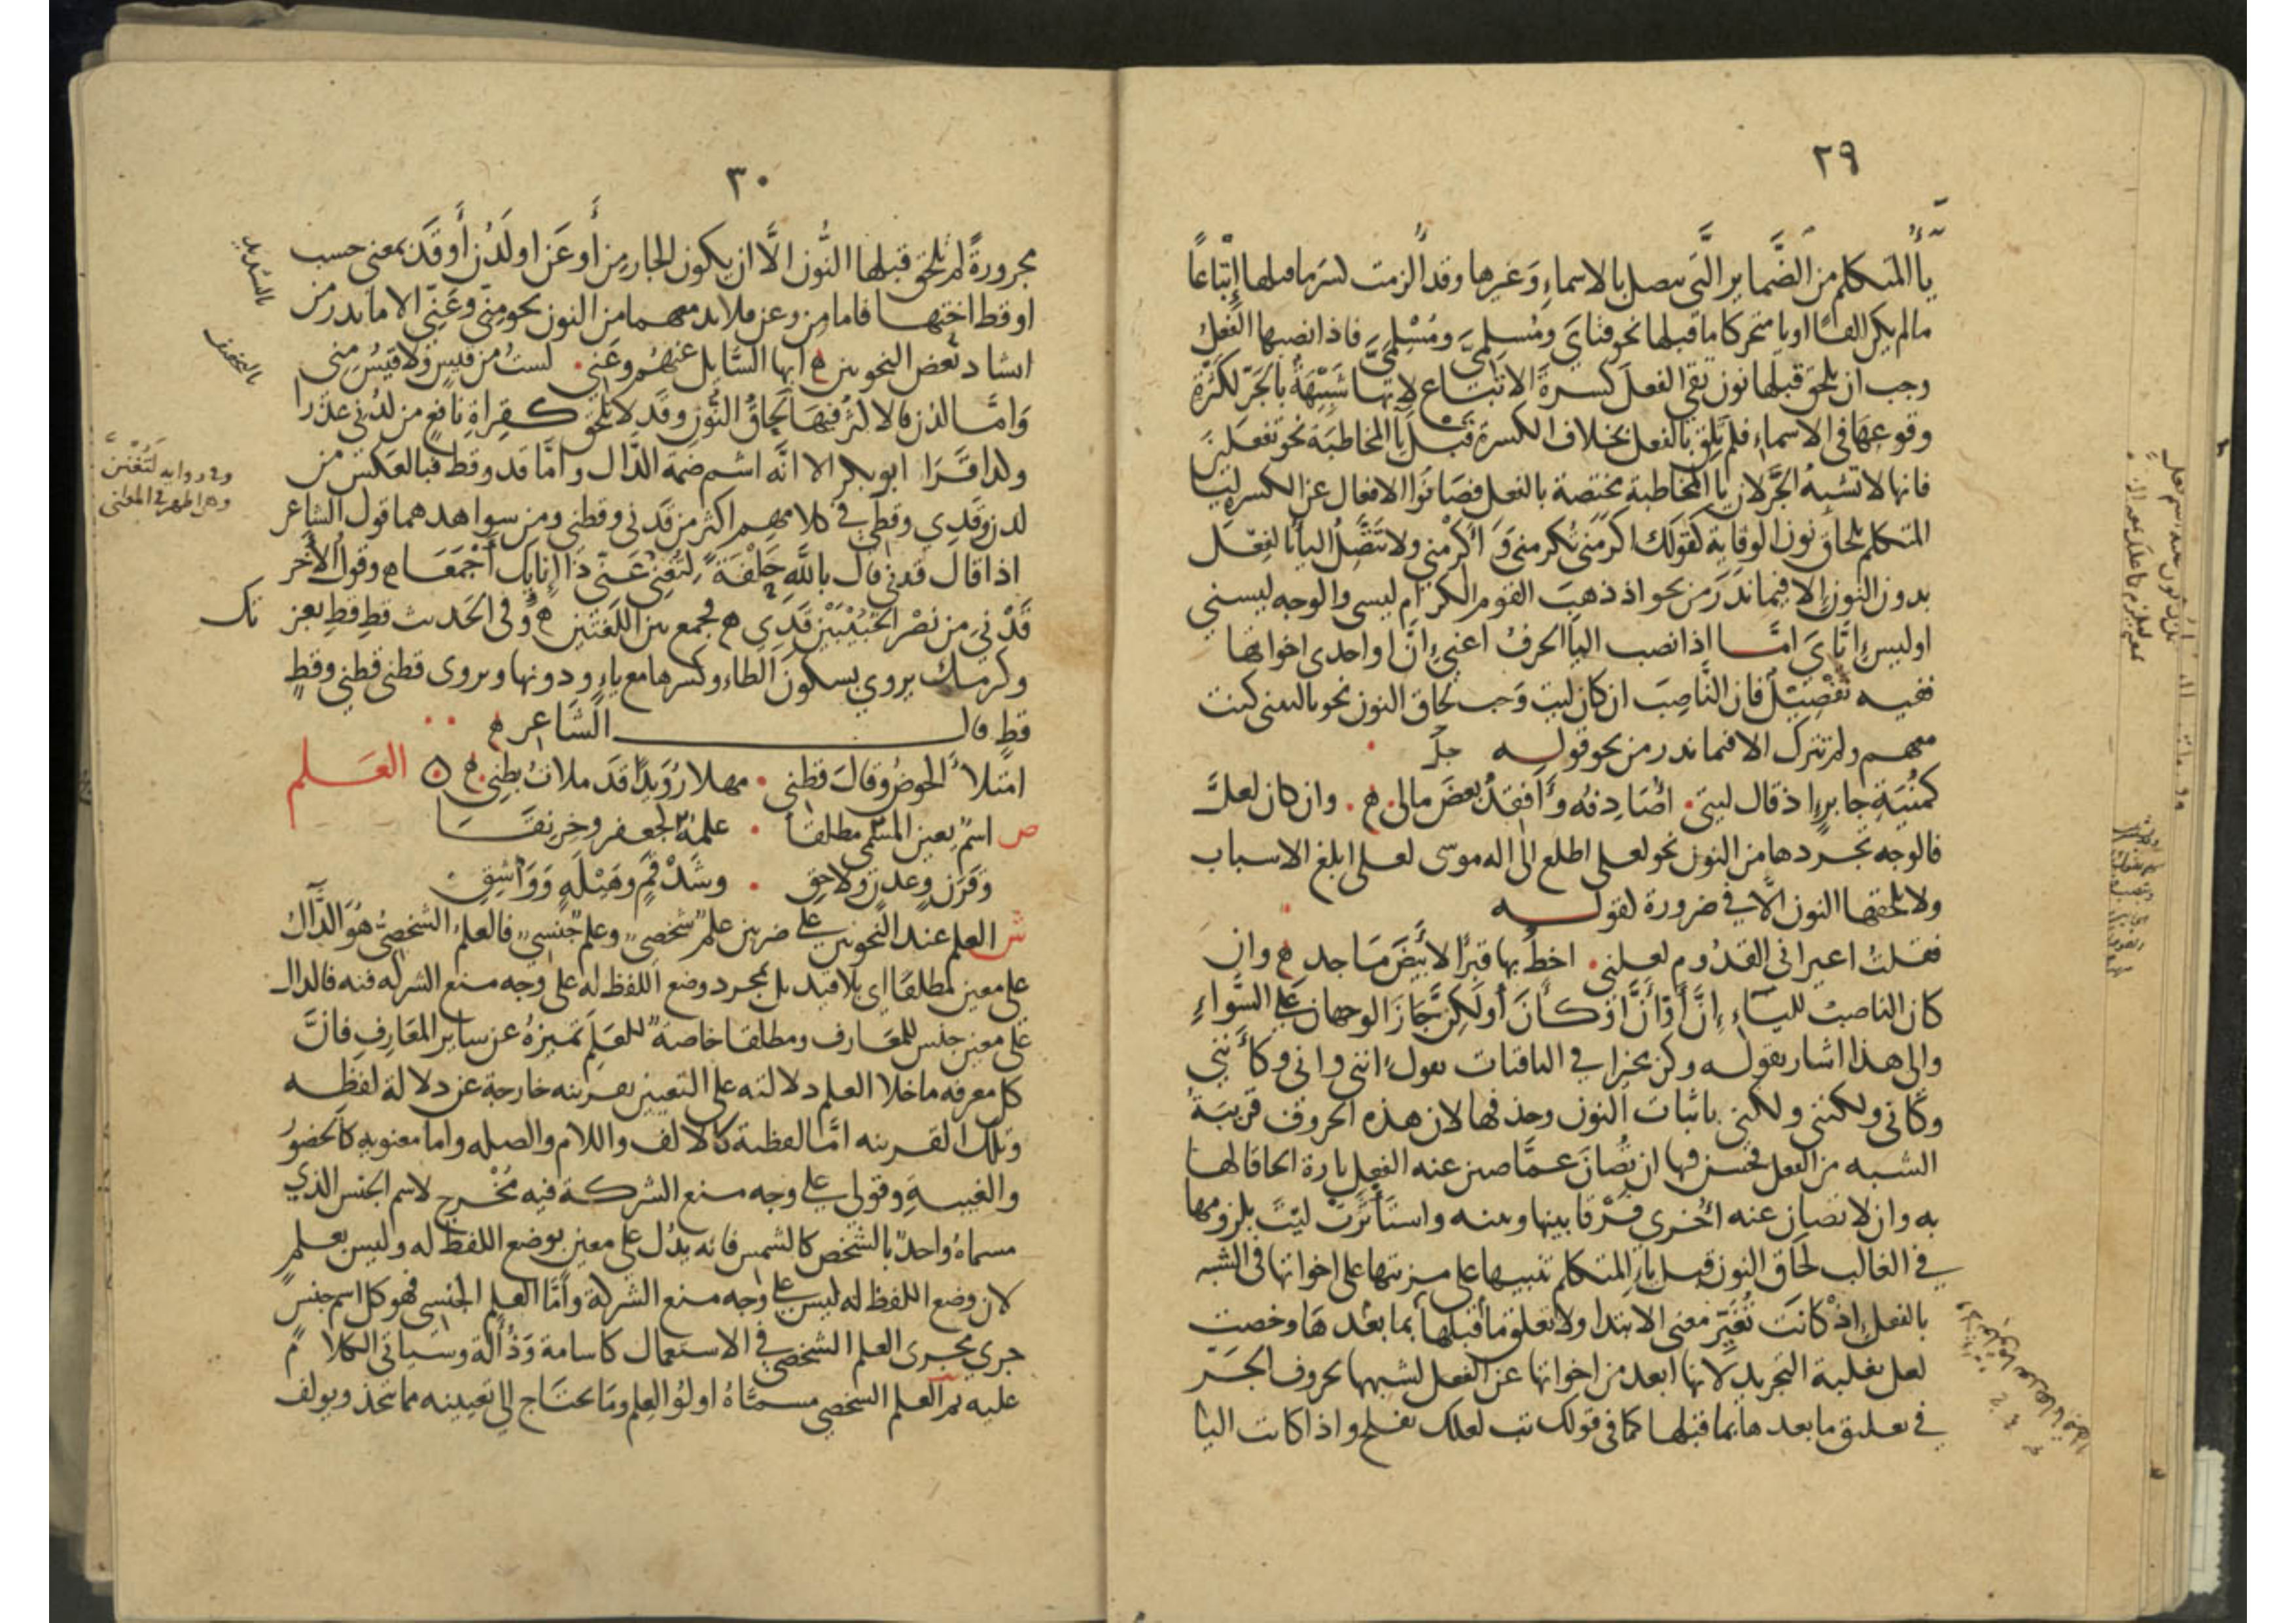 ٢٩
ياء المتكلم من الضماير التي تتصل بالاسماء وغيرها وقد الزمت كسر ما قبلها إتباعاً
مالم يكن الفًا او يا متحركا ما قبلها نحو فتايَ ومُسلِميَّ ومُسْلِمَيَّ فاذا نصبها الفعل
وجب ان يلحق قبلها نون تقي الفعلَ كسرةَ الاتباع لانها شَبِيْهَةٌ بالجَرّ لكثرة
وقوعها في الاسماء فلم تلِق بالفعل بخلاف الكسرة قبل يا المخاطبَة نحو تفعَلين
فانها لا تشبهُ الجرَّ لان يا المخاطبة مختصة بالفعل فصَانُوا الافعال عن الكسر لِيَا
المتكلم بلحاق نون الوقاية كقولك اكرمَني يُكرمني وَ أَكْرمْني ولا تتَّصِلُ اليا بالفِعْل
بدون النون إلا فيما ندَرَ من نحو اذ ذهبَ القوم الكرام ليسي والوجه ليسني
او ليس إيَّايَ امَّا اذا نصب اليا الحرفُ اعني إنَّ او احدى اخواتها
ففيه تفْصِيْلٌ فان النَّاصِبَ ان كان ليت وَجب لحاق النون نحو يا ليتني كنت
معهم ولم تترك الا فيما ندر من نحو قوله
كمُنيَةِ جابرٍ اذ قال ليتي • اُصَادِفهُ وأفقِدُ بعضَ مالي ه • وان كان لعلَّ
فالوجه تجردها من النون نحو لعلي اطلع الى اله موسى لعلي ابلغ الاسباب
ولا تلحقها النون الّا في ضرورة لقوله
فقلتُ اعيراني القدُوم لعلني • اخطُّ بها قبرًا لأبيضَ مَاجدِ ه وان
كان الناصبُ للياء إِنَّ أَوْ أَنَّ او كأَنَ أو لَكِنَّ جَازَ الوجهان عَلى السَّواءِ
والى هذا اشار بقوله وكن مخيرا في الباقيات تقول انني واني وكأَنني
وكأني ولكنني ولكني باثبات النون وحذفها لان هذه الحروف قريبَةُ
الشبه من الفعل فحسن فيها ان تُصَانَ عمَّا صين عنه الفعل تارة الحاقا لها
به وان لا تصان عنه أُخرى فَرْقا بينها وبينه واستَأثرَتْ ليت بلزومها
في الغالب لحَاق النون قبل ياء المتكلم تنبيها على مزيتها على اخواتها في الشبه
بالفعل إذْ كانَت تُغَيِّر معنى الابتدا ولا تعلق ما قبلها بما بعْدهَا وخصت
لعل بغلبة التجريد لانها ابعد من اخواتها عن الفعل لشبهها بحروف الجَر
في تعليق ما بعدها بما قبلها كما في قولك تب لعلك تفلح واذا كانت اليا
٣٠
مجرورةً لم تلحق قبلها النُّون الَّا ان يكون الجار مِن أَو عَن او لَدُن أَو قَد بمعنى حسب
او قط اختها فاما من وعن فلا بد معهما من النون نحو مِنّي وعَنّي الا ما ندر من
انشاد بَعض النحويين ه ايها السَّايل عنهُم وعَني • لستُ من قيسٍ ولا قيسُ مِني
وَامَّا لدُن فالاكثرُ فيهَا لحاقُ النُّون وقد لا تلحق كقراة نافع من لدُني عذرا
ولذا قَرَا ابو بكر الا انَّه اشم ضمة الدَّال وامَّا قد وقط فبالعَكس من
لدن وقدي وقطي في كلامهم اكثر من قدني وقطني ومن شواهدهما قول الشاعر
اذا قال قدني قال باللَّهِ حَلْفَةً لتُغنِيْ عَنّي ذَا إِنايِكَ أَجْمَعَا ه وقول الآخر
قَدْنيَ من نصْر الخُبَيْبَيْنِ قَدِي ه فجمع بين اللغَتَين ه وفي الحَديث قطِ قطِ بعز
تك
وكرمك يروى بسكون الطاء وكسرها مع ياء ودونها ويروى قطني قطني وقطٍ
قطٍ قال الشَّاعر ه
امتلأ الحوضُ وقالَ قطني • مهلا رُوَيدًا قد ملاتُ بطني ه العَلم
ص اسمٌ يعين المسمى مطلقا • علمُهُ كجعفر وخِرنقَا
وَقَرَنٍ وعدنٍ ولاحِق • وشَذْقَمٍ وهَيْلَةٍ وَوَاشِقِ
ش العلم عند النحويين على ضربين علم شخصي وعلم جنسي فالعلم الشخصيُّ هُوَ الدَّالُّ
على معين مطلقًا اي بلا قيد بل بمجرد وضع اللفظ له على وجه منع الشركه فيه فالدال
على معين جنس للمعَارف ومطلقا خاصة للعَلم تميزهُ عن ساير المعَارِفِ فانَّ
كل معرفه ما خلا العلم دلالته على التعيين بقرينه خارجة عن دلالة لفظه
وتلك القرينه امَّا لفظية كالالف واللام والصله واما معنويه كالحضورُ
والغيبةِ وقولي على وجه منع الشركة فيه مُخْرج لاسم الجنس الذي
مسماهُ واحدٌ بالشخص كالشمس فانه يدُل على معين بوضع اللفظ له وليس بعلم
لان وضع اللفظ له ليس على وجه منع الشركة وأمَّا العلم الجنسي فهو كل اسم جنس
جرى مجرى العلم الشخصي في الاستعمال كاسامة وَذُؤالة وسَيَاتي الكلامُ
عليه ثم العلم الشخصي مسمَّاهُ اولُو العِلم ومَا يحتَاج الى تعيينه مما يتخذ ويولف
بالتشديد
بالتخفيف
وفي رواية لتُغْنِيَنَّ